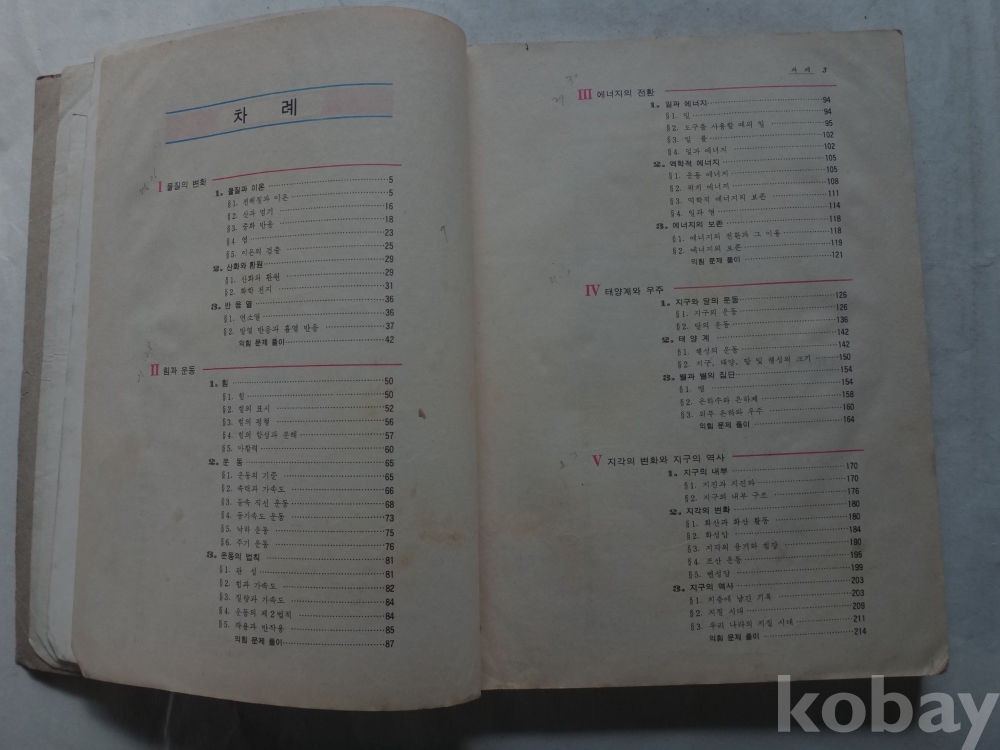 차 례
I 물질의 변화
1. 물질과 이온 5
§1. 전해질과 이온 5
§2. 산과 염기 16
§3. 중화 반응 18
§4. 염 23
§5. 이온의 검출 25
2. 산화와 환원 29
§1. 산화와 환원 29
§2. 화학 전지 31
3. 반 응 열 36
§1. 연소열 36
§2. 발열 반응과 흡열 반응 37
익힘 문제 풀이 42
II 힘과 운동
1. 힘 50
§1. 힘 50
§2. 힘의 표시 52
§3. 힘의 평형 56
§4. 힘의 합성과 분해 57
§5. 마찰력 60
2. 운 동 65
§1. 운동의 기준 65
§2. 속력과 가속도 66
§3. 등속 직선 운동 68
§4. 등가속도 운동 73
§5. 낙하 운동 75
§6. 주기 운동 76
3. 운동의 법칙 81
§1. 관 성 81
§2. 힘과 가속도 82
§3. 질량과 가속도 84
§4. 운동의 제2법칙 84
§5. 작용과 반작용 85
익힘 문제 풀이 87
차 례 3
III 에너지의 전환
1. 일과 에너지 94
§1. 일 94
§2. 도구를 사용할 때의 일 95
§3. 일 률 102
§4. 일과 에너지 102
2. 역학적 에너지 105
§1. 운동 에너지 105
§2. 위치 에너지 108
§3. 역학적 에너지의 보존 111
§4. 일과 열 114
3. 에너지의 보존 118
§1. 에너지의 전환과 그 이용 118
§2. 에너지의 보존 119
익힘 문제 풀이 121
IV 태양계와 우주
1. 지구와 달의 운동 126
§1. 지구의 운동 126
§2. 달의 운동 136
2. 태 양 계 142
§1. 행성의 운동 142
§2. 지구, 태양, 달 및 행성의 크기 150
3. 별과 별의 집단 154
§1. 별 154
§2. 은하수와 은하계 158
§3. 외부 은하와 우주 160
익힘 문제 풀이 164
V 지각의 변화와 지구의 역사
1. 지구의 내부 170
§1. 지진과 지진파 170
§2. 지구의 내부 구조 176
2. 지각의 변화 180
§1. 화산과 화산 활동 180
§2. 화성암 184
§3. 지각의 융기와 침강 190
§4. 조산 운동 195
§5. 변성암 199
3. 지구의 역사 203
§1. 지층에 남긴 기록 203
§2. 지질 시대 209
§3. 우리 나라의 지질 시대 211
익힘 문제 풀이 214
kobay